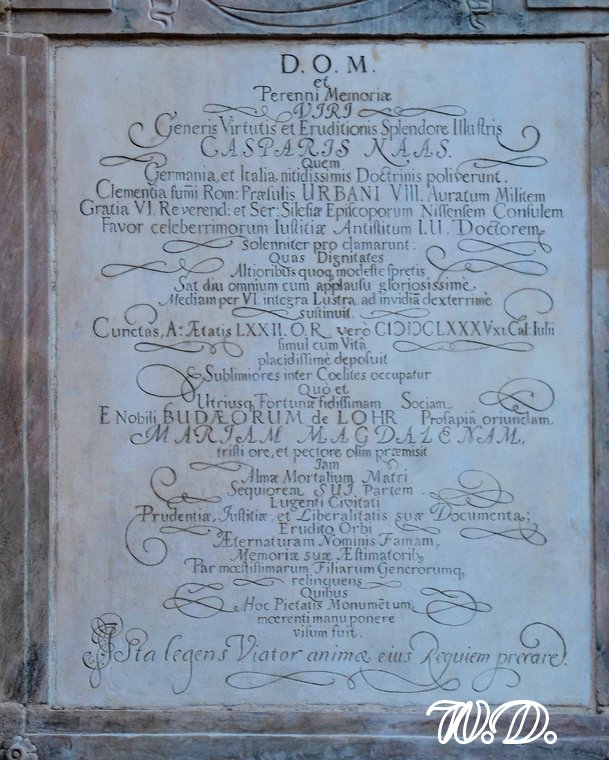 D. O. M.
et
Perenni Memoriæ
VIRI
Generis Virtutis et Eruditionis Splendore Illustris
CASPARIS NAAS.
Quem
Germania, et Italia nitidissimis Doctrinis poliverunt.
Clementia sum̃i Rom: Præsulis URBANI VIII. Auratum Militem
Gratia VI. Reverend: et Ser: Silesiæ Episcoporum Nissensem Consulem
Favor celeberrimorum Iustitiæ Antistitum I.U. Doctorem
solenniter pro clamarunt:
Quas Dignitates
Altioribus quoq, modeste spretis
Sat diu omnium cum applausu gloriosissime
Mediam per VI. integra Lustra ad invidiã dexterrimè
sustinuit,
Cunctas, Aº. Ætatis LXXII. O.R. verò CIƆIƆCLXXXV xi. Cal: Iulii
simul cum Vitâ
placidissimè deposuit
Sublimiores inter Coelites occupatur
Quò et
Utriusq, Fortunæ fidissimam Sociam
E Nobili BUDÆORUM de LOHR Prosapiâ oriundam
MARIAM MAGDALENAM,
tristi ore, et pectore olim præmisit
Iam
Almæ Mortalium Matri
Sequiorem SUI Partem
Lugenti Civitati
Prudentiæ, Iustitiæ et Liberalitatis suæ Documenta;
Erudito Orbi
Æternaturam Nominis Famam,
Memoriæ suæ Æstimatoribꝫ
Par moestissimarum Filiarum Generorumq,
relinquens
Quibus
Hoc Pietatis Monumẽtum
moerenti manu ponere
visum fuit.
Ista legens Viator animæ eius Requiem precare.
W.D.